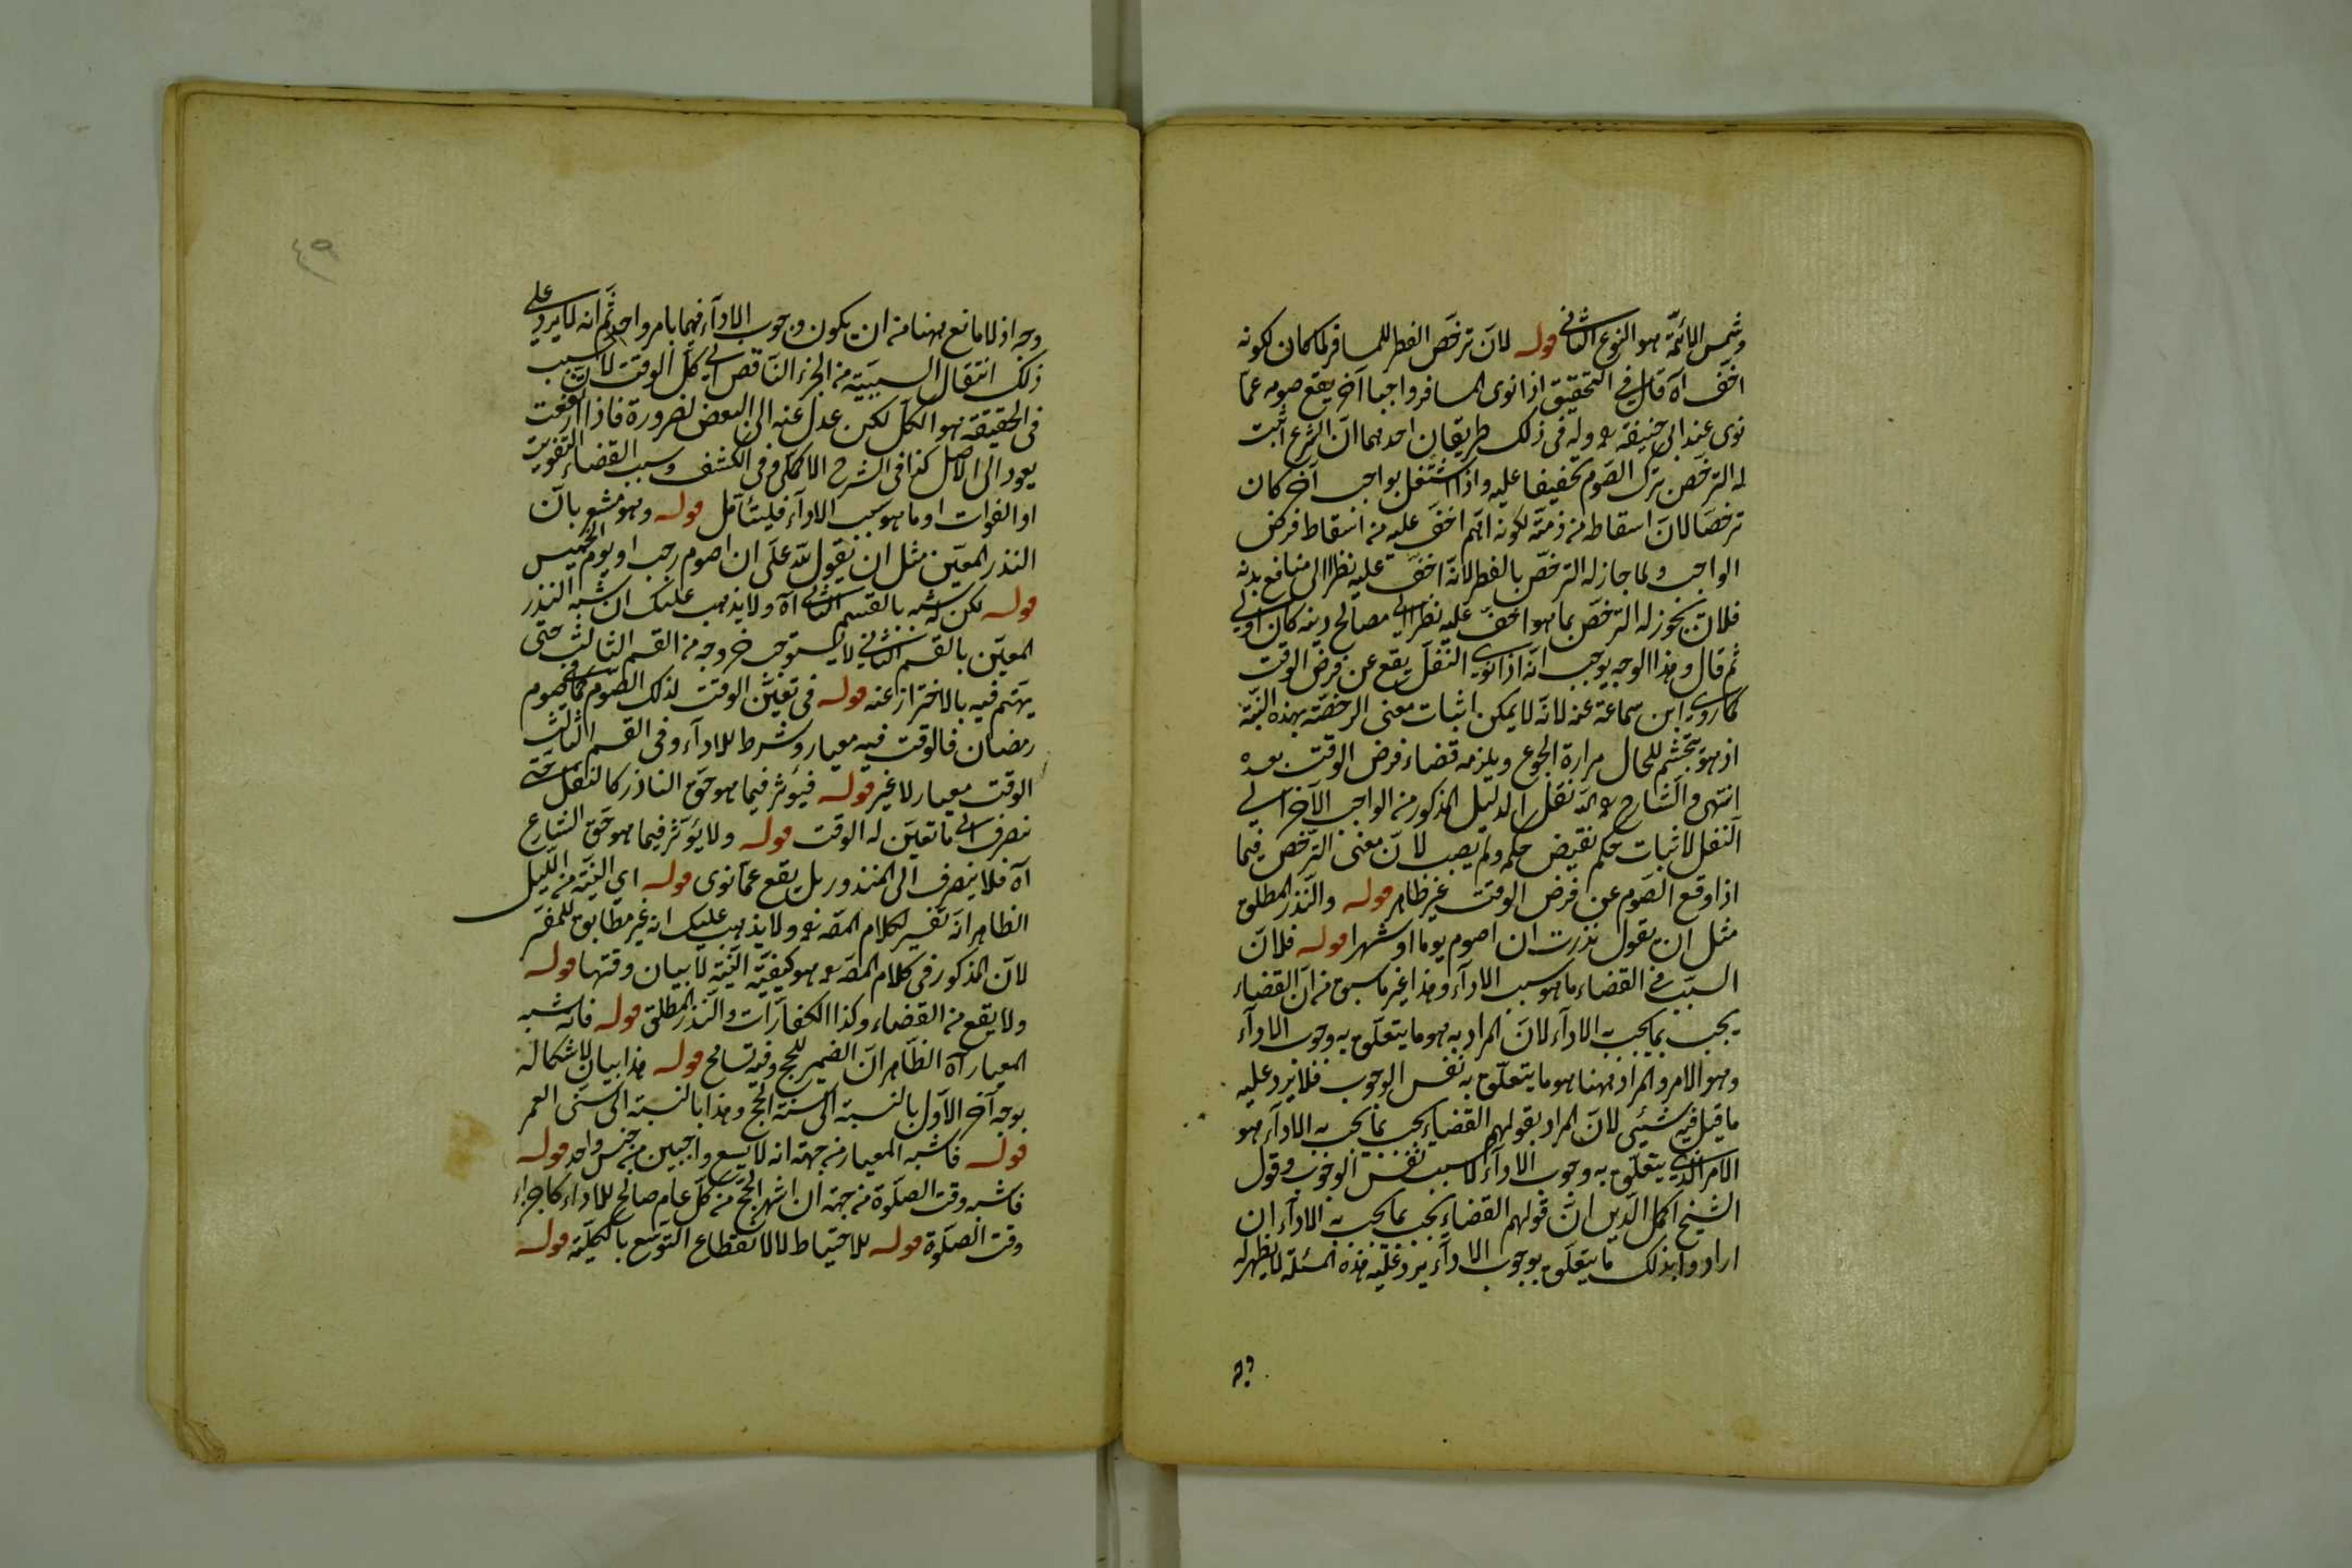 وشمس الائمة هو النوع الثانى قوله لان ترخص الفطر للمسافر لما كان لكونه
اخف آه قال فى التحقيق اذا نوى المسافر واجبا آخر يقع صومه عما
نوى عند ابى حنيفة وله فى ذلك طريقان احدهما ان الشرع اثبت
له الترخص بترك الصوم تخفيفا عليه واذا اشتغل بواجب آخر كان
ترخصا لان اسقاطه من ذمته لكونه اهم اخف عليه من اسقاط فرض
الواجب ولما جاز له الترخص بالفطر لانه اخف عليه نظرا الى منافع بدنه
فلان يجوز له الترخص بما هو اخف عليه نظرا الى مصالح دينه كان اولى
ثم قال وهذا الوجه يوجب انه اذا نوى النفل يقع عن فرض الوقت
كما روى ابن سماعة عنه لانه لا يمكن اثبات معنى الرخصة بهذه النية
اذ هو تجشم للحال مرارة الجوع ويلزمه قضاء فرض الوقت بعده
انتهى والشارح نقل الدليل المذكور من الواجب الآخر الى
النفل لاثبات حكم نقيض حكمه ولم يصب لان معنى الترخص فيما
اذا وقع الصوم عن فرض الوقت غير ظاهر قوله والنذر المطلق
مثل ان يقول نذرت ان اصوم يوما او شهرا قوله فلان
السبب فى القضاء ما هو سبب الاداء وهذا غير ما سبق من ان القضاء
يجب بما يجب به الاداء لان المراد به هو ما يتعلق به وجوب الاداء
وهو الامر والمراد ههنا هو ما يتعلق به نفس الوجوب فلا يرد عليه
ما قيل فيه شيئ لان المراد بقولهم القضاء يجب بما يجب به الاداء هو
الامر الذى يتعلق به وجوب الاداء لا سبب نفس الوجوب وقول
الشيخ اكمل الدين ان قولهم القضاء يجب بما يجب به الاداء ان
ارادوا بذلك ما يتعلق بوجوب الاداء يرد عليه هذه المسئلة لا يظهر له
وجه
وجه اذ لا مانع ههنا من ان يكون وجوب الاداء فيهما بامر واحد ثم انه لا يرد على
ذلك انتقال السببية من الجزء الناقص الى كل الوقت لان السبب
فى الحقيقة هو الكل لكن عدل عنه الى البعض لضرورة فاذا ارتفعت
يعود الى الاصل كذا فى الشرح الاكملى وفى الكشف وسبب القضاء التفويت
او الفوات او ما هو سبب الاداء فليتأمل قوله وهو مشعر بان
النذر المعين مثل ان يقول لله على ان اصوم رجب او يوم الخميس
قوله لكن له شبه بالقسم الثانى آه ولا يذهب عليك ان شبه النذر
المعين بالقسم الثانى لا يستوجب خروجه من القسم الثالث حتى
يهتم فيه بالاحتراز عنه قوله فى تعين الوقت لذلك الصوم كما فى صوم
رمضان فالوقت فيه معيار وشرط للاداء وفى القسم الثالث
الوقت معيار لا غير قوله فيؤثر فيما هو حق الناذر كالنفل حتى
ينصرف الى ما تعين له الوقت قوله ولا يؤثر فيما هو حق الشارع
آه فلا ينصرف الى المنذور بل يقع عما نوى قوله اى النية من الليل
الظاهر انه تفسير لكلام المص ولا يذهب عليك انه غير مطابق للمفسر
لان المذكور فى كلام المص هو كيفية النية لا بيان وقتها قوله
ولا يقع من القضاء وكذا الكفارات والنذر المطلق قوله فانه شبه
المعيار آه الظاهر ان الضمير للحج وفيه تسامح قوله هذا بيان لاشكاله
بوجه آخر الاول بالنسبة الى سنة الحج وهذا بالنسبة الى سنى العمر
قوله فاشبه المعيار من جهة انه لا يسع واجبين من جنس واحد قوله
فاشبه وقت الصلوة من جهة ان اشهر الحج من كل عام صالح للاداء كاجزاء
وقت الصلوة قوله للاحتياط لا لانقطاع التوسع بالكلية قوله